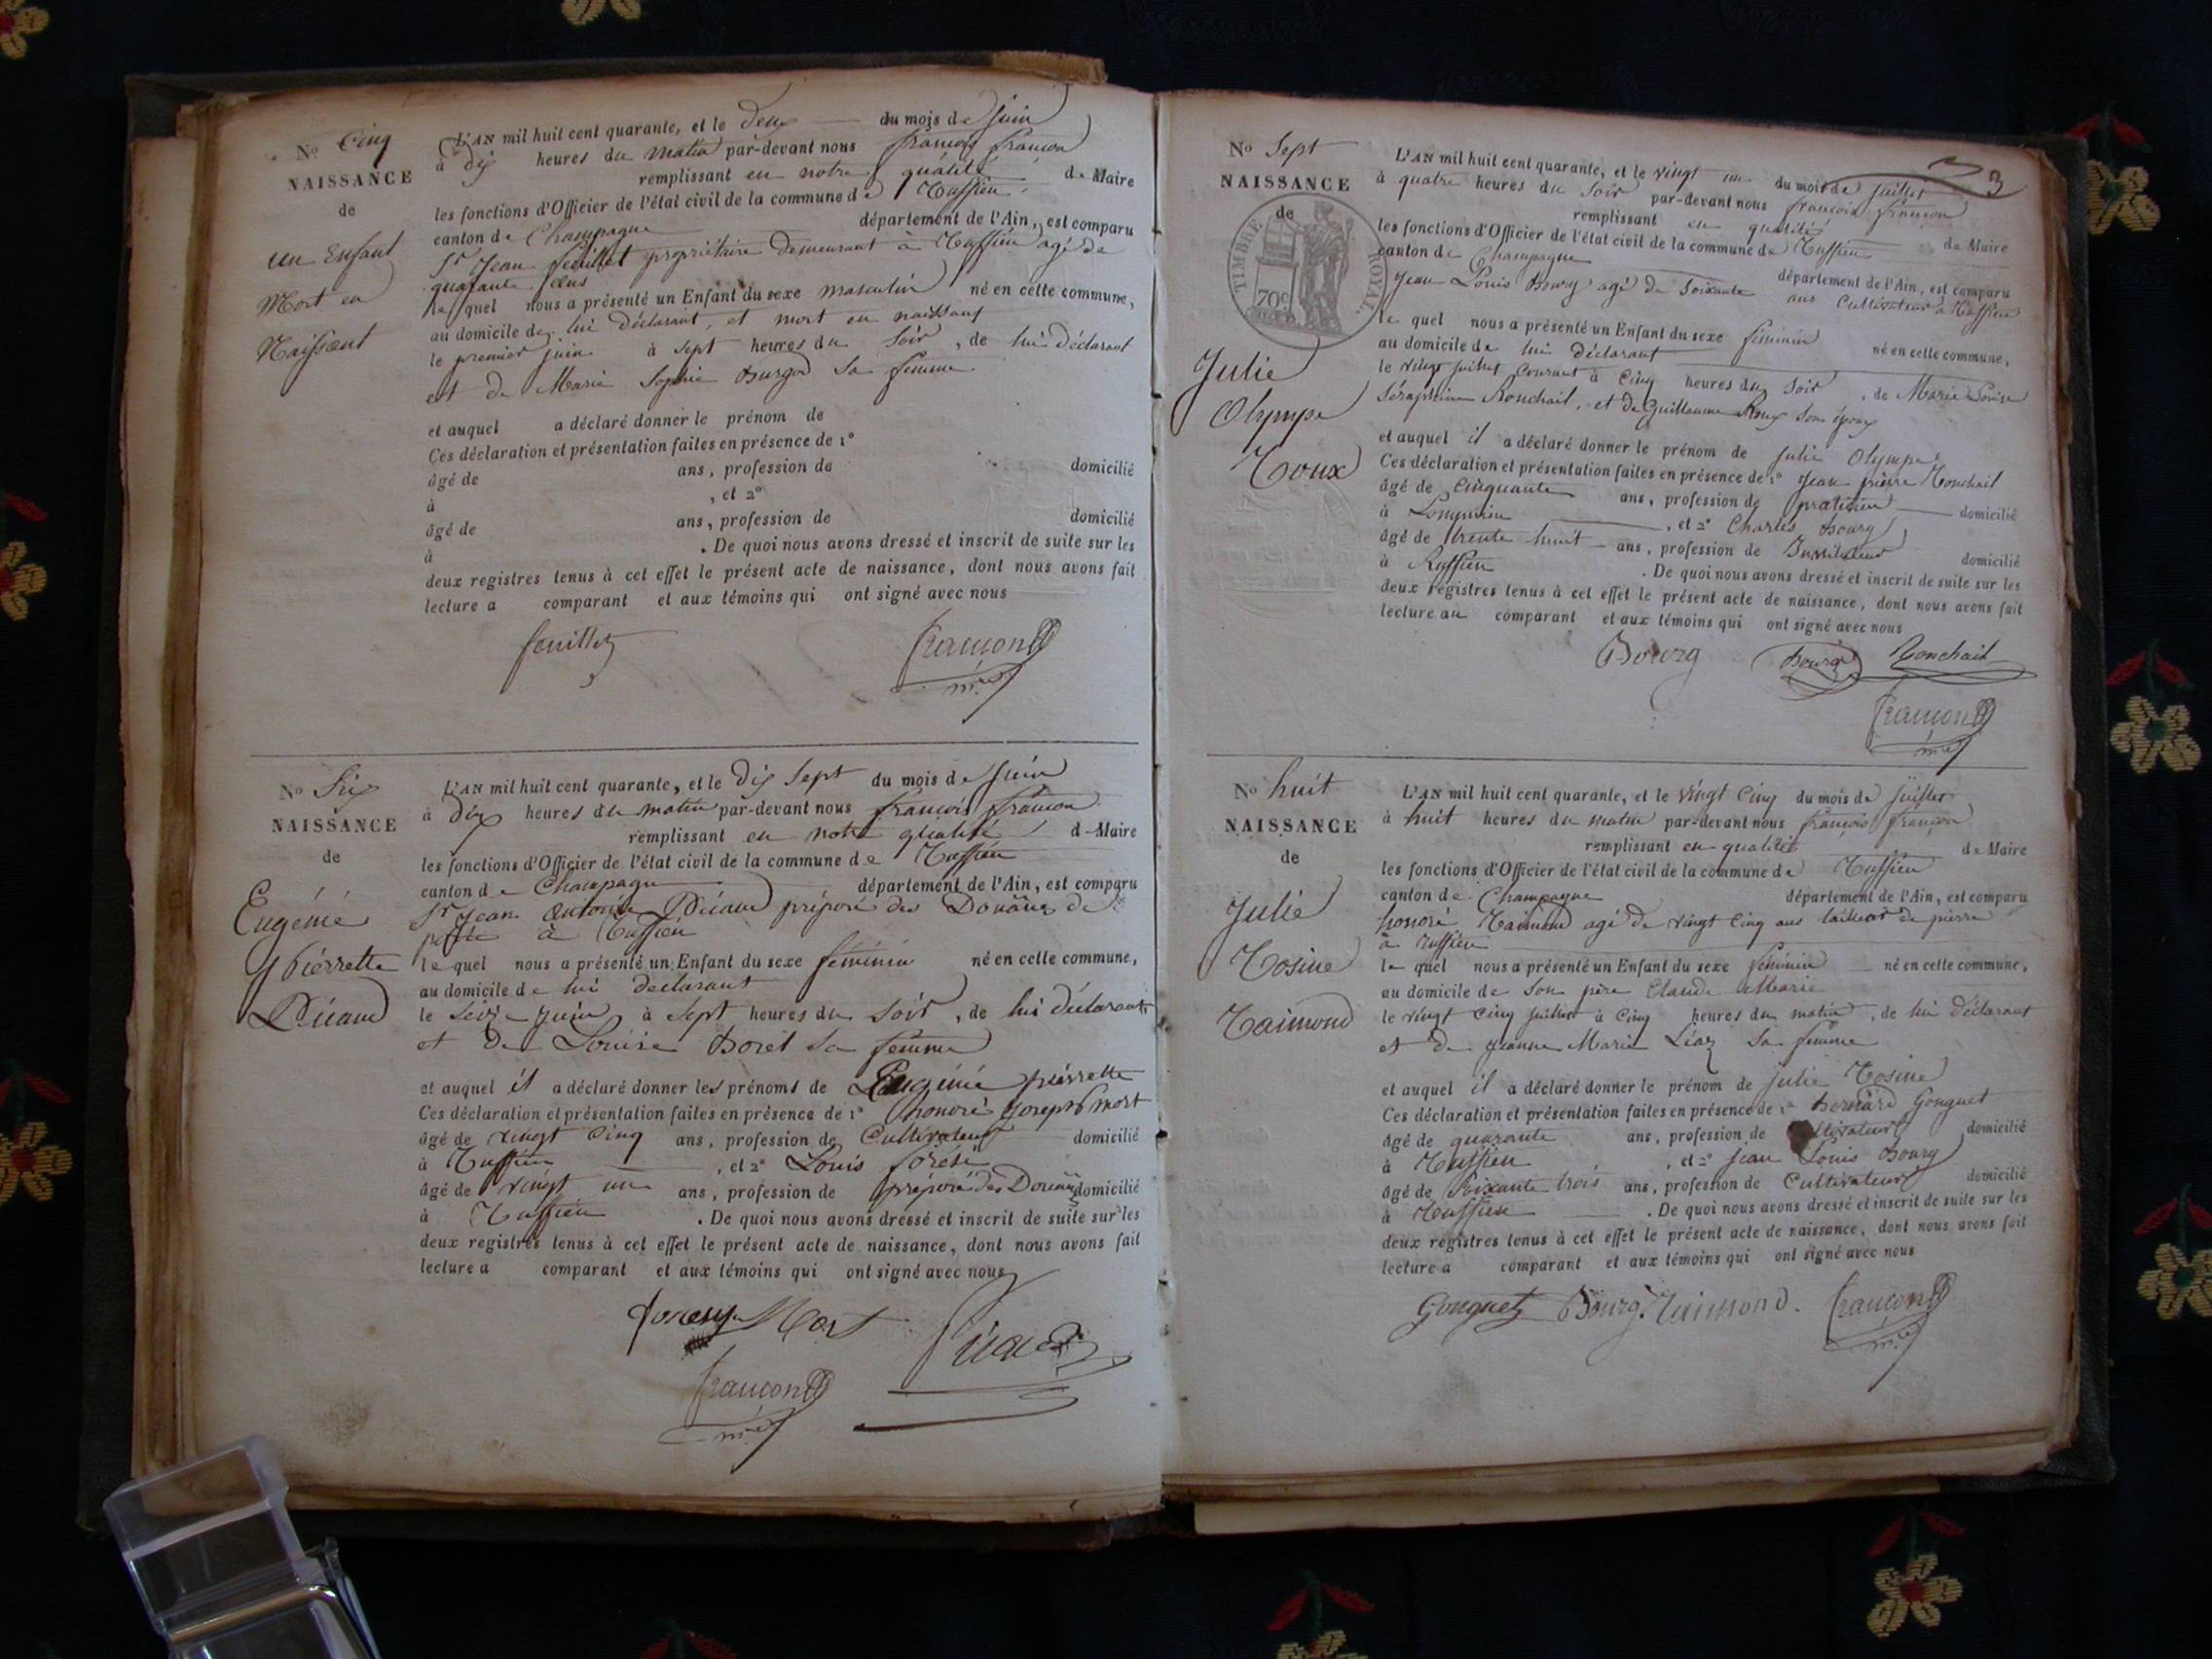 No Cinq
NAISSANCE
de
un Enfant
Mort en
Naissant
L'AN mil huit cent quarante, et le deux du mois de juin
à dix heures du matin par-devant nous françois françon
remplissant en notre qualité de Maire
les fonctions d'Officier de l'état civil de la commune de Ruffieu
canton de Champagne département de l'Ain, est comparu
Sr Jean feuillet propriétaire demeurant à Ruffieu agé de
quarante ans
le quel nous a présenté un Enfant du sexe masculin né en cette commune,
au domicile de lui déclarant, et mort en naissant
le premier juin à sept heures du soir, de lui déclarant
et de Marie Sophie sa femme
et auquel a déclaré donner le prénom de
Ces déclaration et présentation faites en présence de 1°
âgé de ans, profession de domicilié
à , et 2°
âgé de ans, profession de domicilié
à . De quoi nous avons dressé et inscrit de suite sur les
deux registres tenus à cet effet le présent acte de naissance, dont nous avons fait
lecture a comparant et aux témoins qui ont signé avec nous
feuillet françon
mre
No Six
NAISSANCE
de
Eugénie
Pierrette
L'AN mil huit cent quarante, et le dix sept du mois de juin
à dix heures du matin par-devant nous françois françon
remplissant en notre qualité de Maire
les fonctions d'Officier de l'état civil de la commune de Ruffieu
canton de Champagne département de l'Ain, est comparu
Sr Jean Antoine préposé des Douanes de
poste à Ruffieu
le quel nous a présenté un Enfant du sexe féminin né en cette commune,
au domicile de lui declarant
le seize juin à sept heures du soir, de lui déclarant
et de Louise Borel sa femme
et auquel il a déclaré donner les prénoms de Eugénie pierrette
Ces déclaration et présentation faites en présence de 1° honoré joseph mort
âgé de vingt cinq ans, profession de Cultivateur domicilié
à Ruffieu , et 2° Louis
âgé de vingt un ans, profession de préposé des Douanes domicilié
à Ruffieu . De quoi nous avons dressé et inscrit de suite sur les
deux registres tenus à cet effet le présent acte de naissance, dont nous avons fait
lecture a comparant et aux témoins qui ont signé avec nous
Mort
françon
mre
3
No Sept
NAISSANCE
de
TIMBRE ROYAL.
70c
Julie
Olympe
Roux
L'AN mil huit cent quarante, et le vingt un du mois de juillet
à quatre heures du soir par-devant nous françois françon
remplissant en qualité de Maire
les fonctions d'Officier de l'état civil de la commune de Ruffieu
canton de Champagne département de l'Ain, est comparu
Jean Louis Bourg agé de soixante ans Cultivateur à Ruffieu
le quel nous a présenté un Enfant du sexe féminin né en cette commune,
au domicile de lui déclarant
le vingt juillet courant à cinq heures du soir, de Marie Louise
Séraphine Ronchail, et de Guillaume Roux son époux
et auquel il a déclaré donner le prénom de Julie Olympe
Ces déclaration et présentation faites en présence de 1° Jean pierre Ronchail
âgé de cinquante ans, profession de praticien domicilié
à Lompnieu , et 2° Charles Bourg
âgé de trente huit ans, profession de Instituteur domicilié
à Ruffieu . De quoi nous avons dressé et inscrit de suite sur les
deux registres tenus à cet effet le présent acte de naissance, dont nous avons fait
lecture au comparant et aux témoins qui ont signé avec nous
Bourg Bourg Ronchail
françon
mre
No huit
NAISSANCE
de
Julie
Rosine
Raimond
L'AN mil huit cent quarante, et le vingt cinq du mois de juillet
à huit heures du matin par-devant nous françois françon
remplissant en qualité de Maire
les fonctions d'Officier de l'état civil de la commune de Ruffieu
canton de Champagne département de l'Ain, est comparu
honoré Raimond agé de vingt cinq ans tailleur de pierre
à Ruffieu
le quel nous a présenté un Enfant du sexe féminin né en cette commune,
au domicile de son père Claude Marie
le vingt cinq juillet à cinq heures du matin, de lui déclarant
et de jeanne Marie Liaz sa femme
et auquel il a déclaré donner le prénom de julie Rosine
Ces déclaration et présentation faites en présence de 1° Bernard Gonguet
âgé de quarante ans, profession de cultivateur domicilié
à Ruffieu , et 2° Jean Louis Bourg
âgé de soixante trois ans, profession de Cultivateur domicilié
à Ruffieu . De quoi nous avons dressé et inscrit de suite sur les
deux registres tenus à cet effet le présent acte de naissance, dont nous avons fait
lecture a comparant et aux témoins qui ont signé avec nous
Gonguet Bourg Raimond. françon
mre